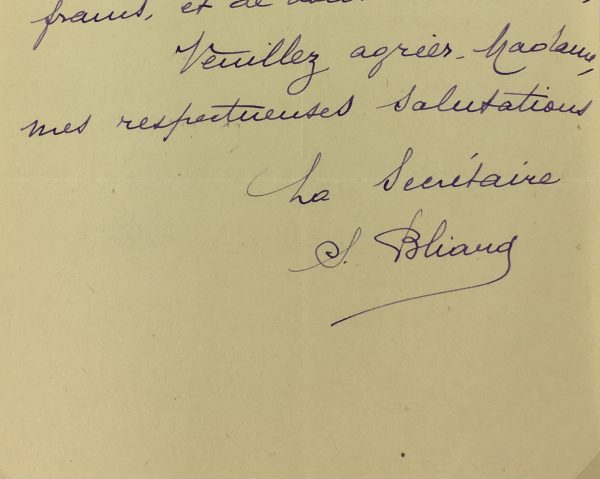 francs, et de
Veuillez agréer, Madame,
mes respectueuses salutations
La Secrétaire
S. Bliard